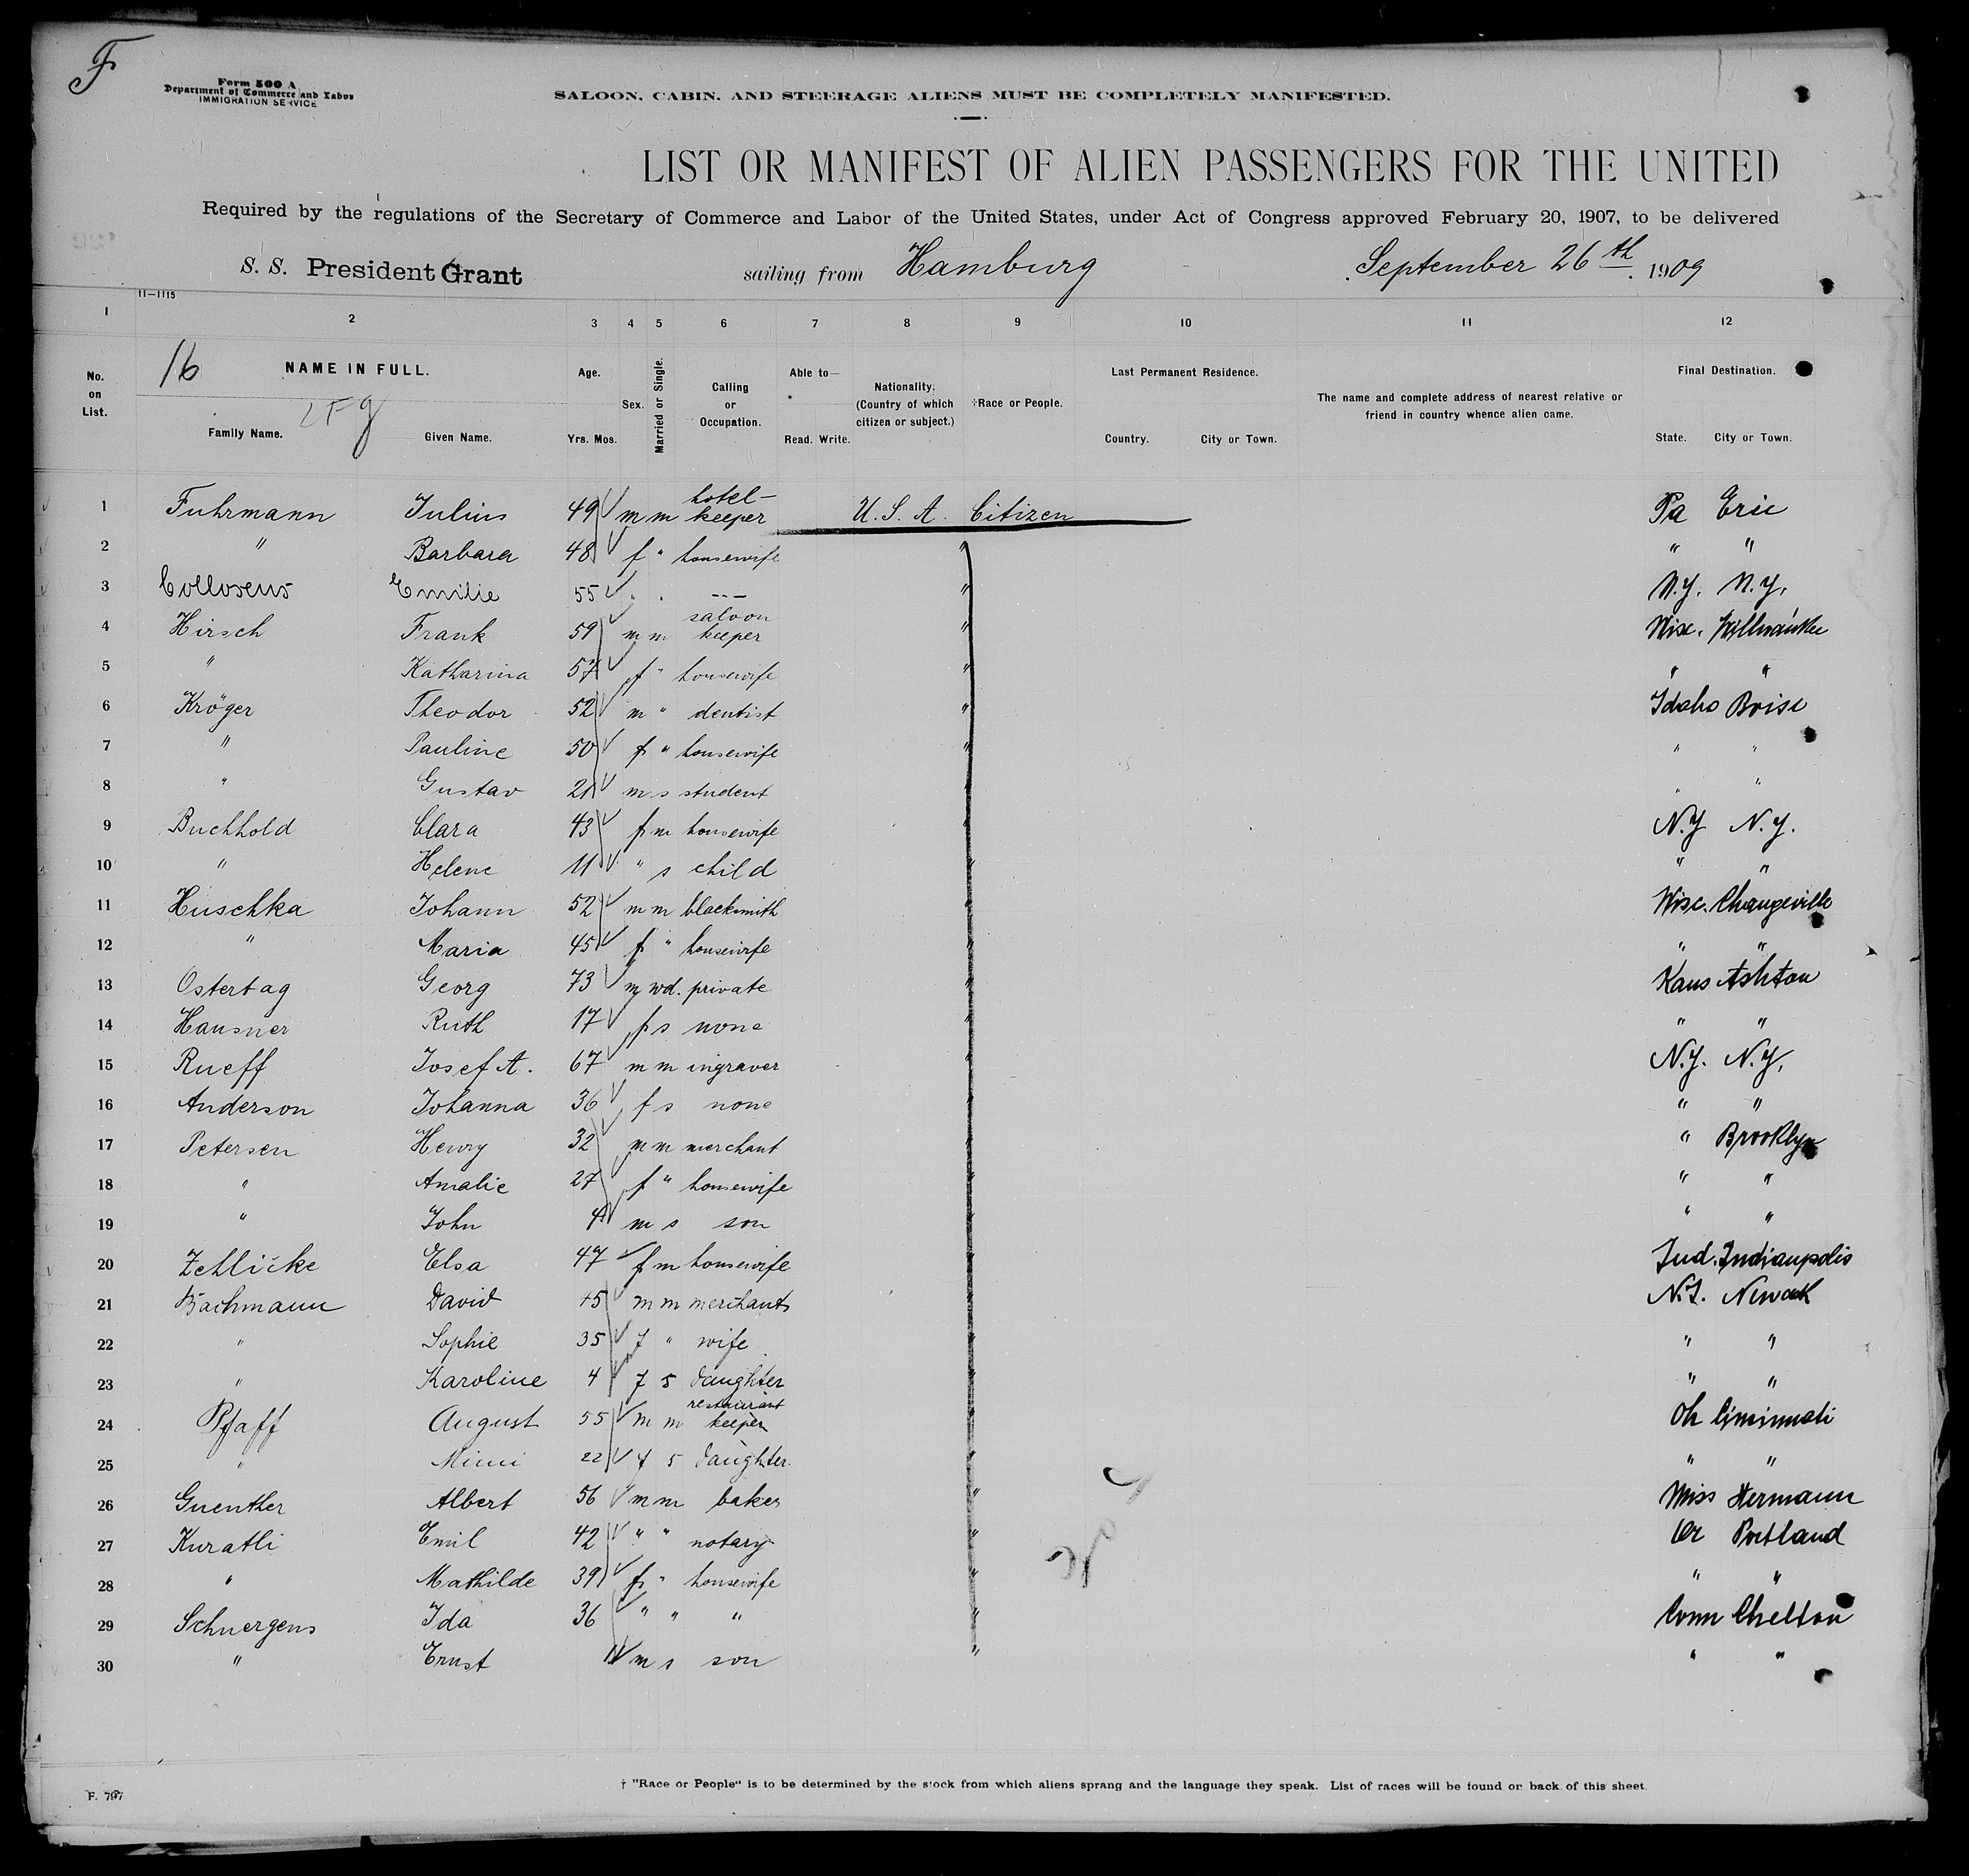 F
Form 500 A
Department of Commerce and Labor
IMMIGRATION SERVICE
SALOON, CABIN, AND STEERAGE ALIENS MUST BE COMPLETELY MANIFESTED.
LIST OR MANIFEST OF ALIEN PASSENGERS FOR THE UNITED
Required by the regulations of the Secretary of Commerce and Labor of the United States, under Act of Congress approved February 20, 1907, to be delivered
S. S. President Grant sailing from Hamburg September 26th. 1909
11—1115
1 2 3 4 5 6 7 8 9 10 11 12
16
No. on List. NAME IN FULL. Family Name. Given Name. Age. Yrs. Mos. Sex. Married or Single. Calling or Occupation. Able to— Read. Write. Nationality. (Country of which citizen or subject.) †Race or People. Last Permanent Residence. Country. City or Town. The name and complete address of nearest relative or friend in country whence alien came. Final Destination. State. City or Town.
1 Fuhrmann Julius 49 m m hotel-keeper U.S.A. Citizen Pa Erie
2 " Barbara 48 f " housewife " "
3 Colloseus Emilie 55 " " --- " N.Y. N.Y.
4 Hirsch Frank 59 m m saloon keeper " Wisc.
5 " Katharina 57 f " housewife " " "
6 Kröger Theodor 52 m " dentist " Idaho Boise
7 " Pauline 50 f " housewife " " "
8 " Gustav 21 m s student " " "
9 Buchhold Clara 43 f m housewife " N.Y N.Y.
10 " Helene 11 " s child " " "
11 Huschka Johann 52 m m blacksmith " Wisc.
12 " Maria 45 f " housewife " " "
13 Ostertag Georg 73 m wd. private " Kans Ashton
14 Hausner Ruth 17 f s none " " "
15 Rueff Josef A. 67 m m ingraver " N.Y. N.Y.
16 Anderson Johanna 36 f s none " " "
17 Petersen Henry 32 m m merchant " " Brooklyn
18 " Amalie 27 f " housewife " " "
19 " John m s son " " "
20 Elsa 47 f m housewife " Ind. Indianpolis
21 Bachmann David 45 m m merchant " N.J. Newark
22 " Sophie 35 f " wife " " "
23 " Karoline 4 f s daughter " " "
24 Pfaff August 55 m m restaurant keeper " Oh Cincinnati
25 " Mimi 22 f s daughter " " "
26 Guenther Albert 56 m m baker " Miss Hermann
27 Kuratli Emil 42 " " notary " Or Portland
28 " Mathilde 39 f " housewife " " "
29 Schuergens Ida 36 " " " " Conn Chelton
30 " Ernst 11 m s son " " "
† "Race or People" is to be determined by the stock from which aliens sprang and the language they speak. List of races will be found on back of this sheet.
F. 797